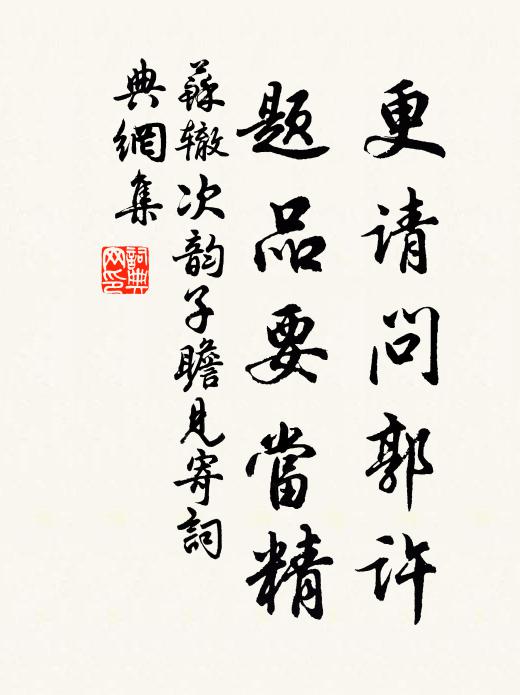 更请问郭许
题品要當精
蘇辙次韵子瞻見寄詞
典網集
詞典网印